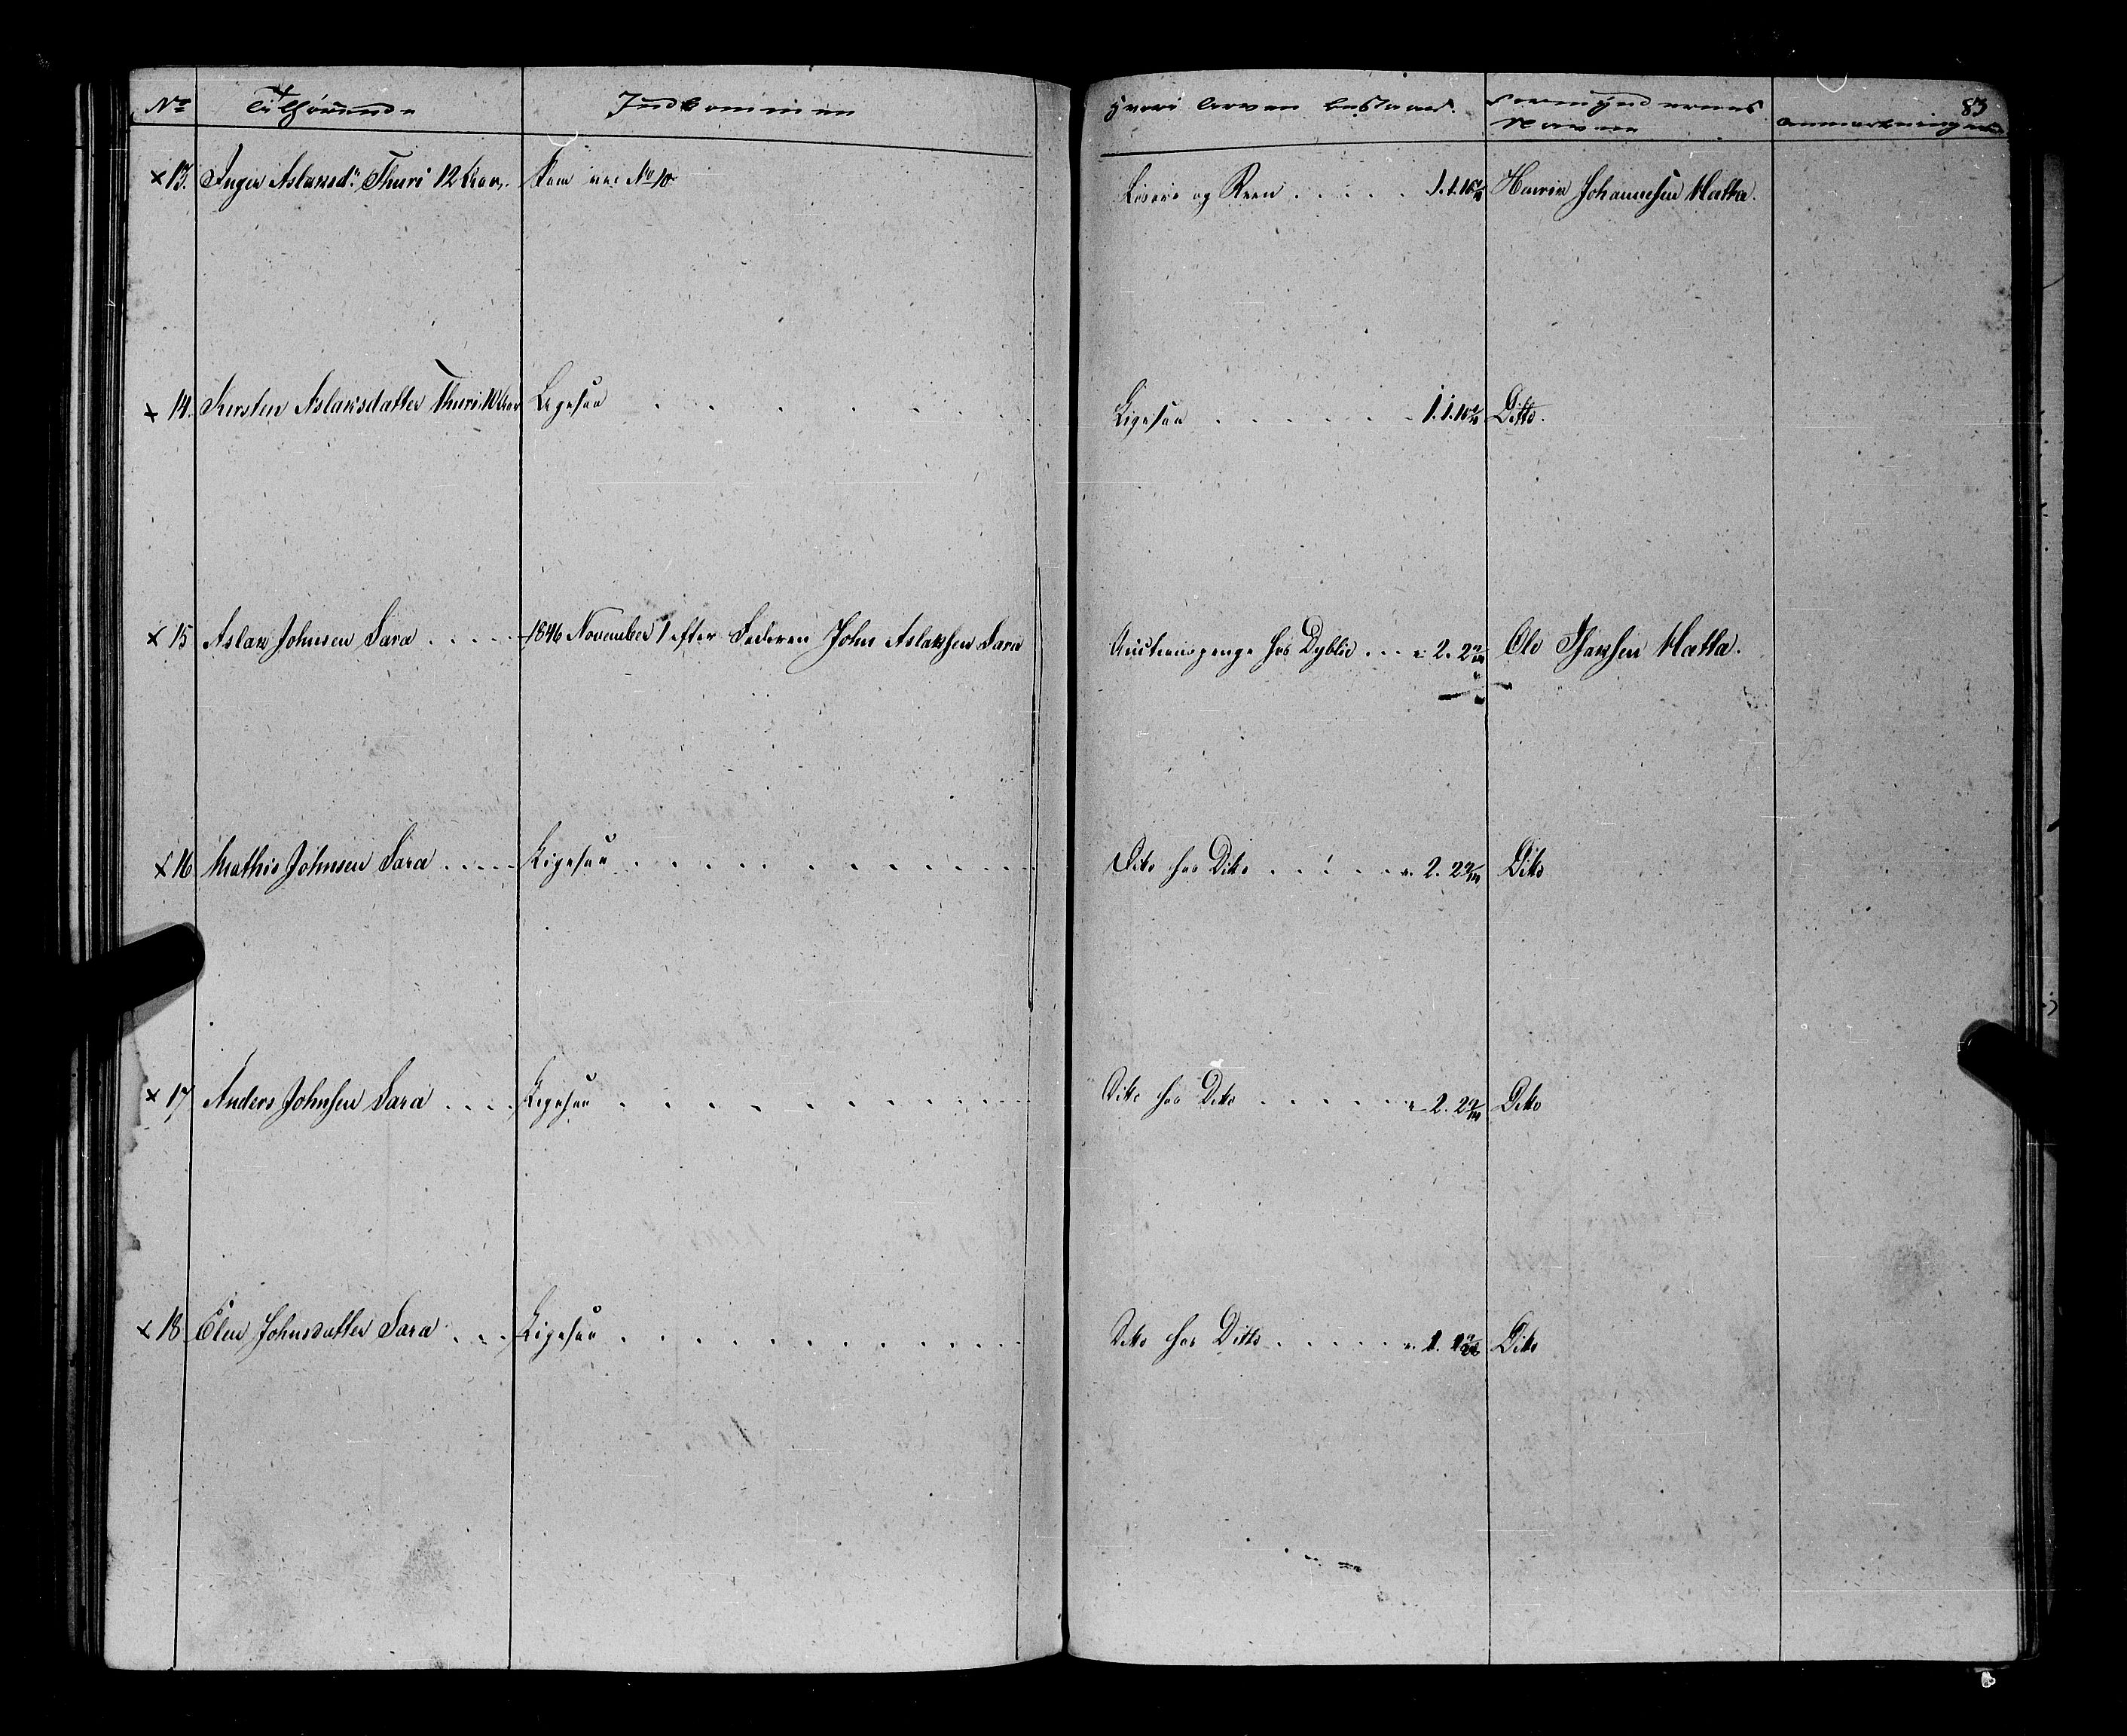 No Tilhørende Indkommen Hvori Arven bestaaer. Formyndernes Navne Anmærkninger 83
× 13. Inger Aslaksdr Thuri 12 Aar. No 10 og Reen . . . . . 1.1.10 Henrik Johannesen Hætta.
× 14. Kirsten Aslaksdatter Thuri 10 Aar Ligesaa . . . . . . . Ligesaa . . . . . . 1.1.10 Ditto.
× 15 Aslak Johnsen Sara . . . . . 1846 November 1 efter Faderen John Aslaksen Sara Auctionspenge hos Dyblie . . . " 2. 2 Ole Isaksen Hætta.
× 16 Mathis Johnsen Sara . . . . Ligesaa . . . . . . . . . . Dito hos Dito . . . . . ". 2. 2 Dito
× 17 Anders Johnsen Sara . . . . Ligesaa . . . . . . . . . . Dito hos Dito . . . . . . " 2. 2 Dito
× 18 Elen Johnsdatter Sara . . . Ligesaa . . . . . . . . . . Dito hos Ditto . . . . . ". 1. Dito